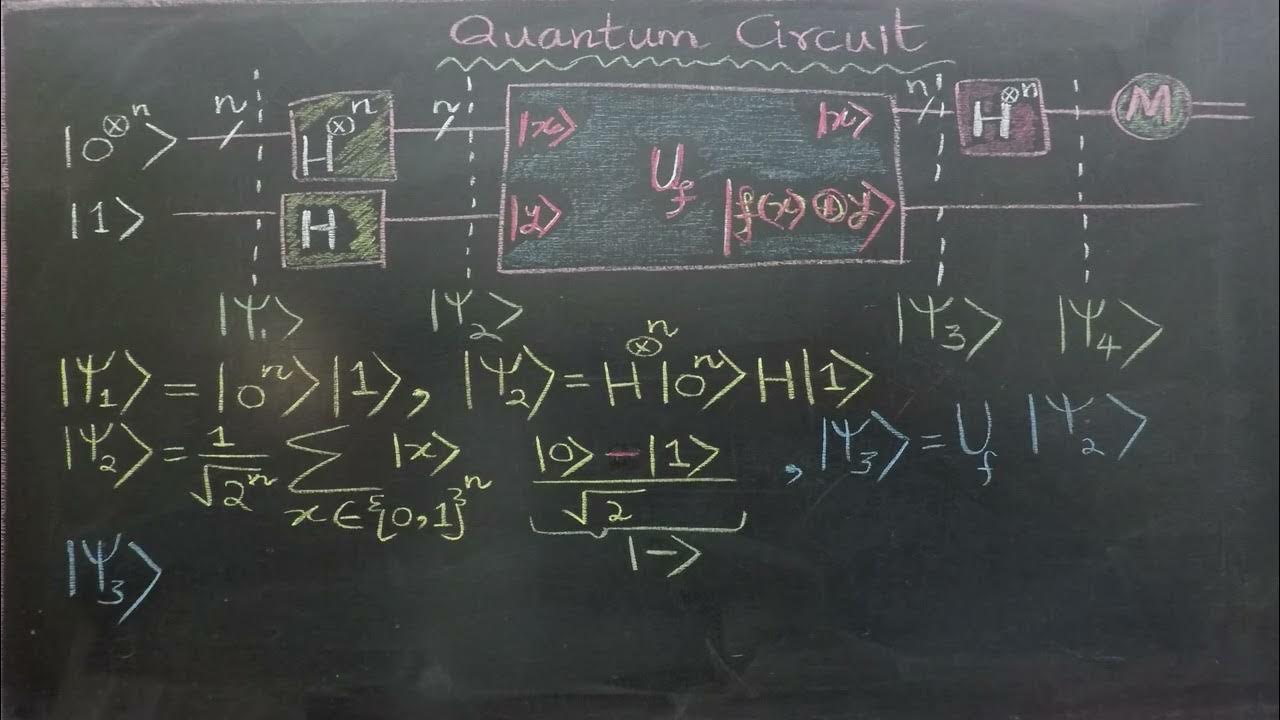 Quantum Circuit
|0⊗ⁿ⟩ n H⊗ⁿ n |x⟩ U_f |x⟩ n H⊗ⁿ M
|1⟩ H |y⟩ |f(x)⊕y⟩
|Ψ₁⟩ |Ψ₂⟩ |Ψ₃⟩ |Ψ₄⟩
|Ψ₁⟩ = |0ⁿ⟩|1⟩, |Ψ₂⟩ = H⊗ⁿ|0ⁿ⟩H|1⟩
|Ψ₂⟩ = 1/√2ⁿ ∑ x∈{0,1}ⁿ |x⟩ (|0⟩ - |1⟩)/√2 , |Ψ₃⟩ = U_f |Ψ₂⟩
|−⟩
|Ψ₃⟩